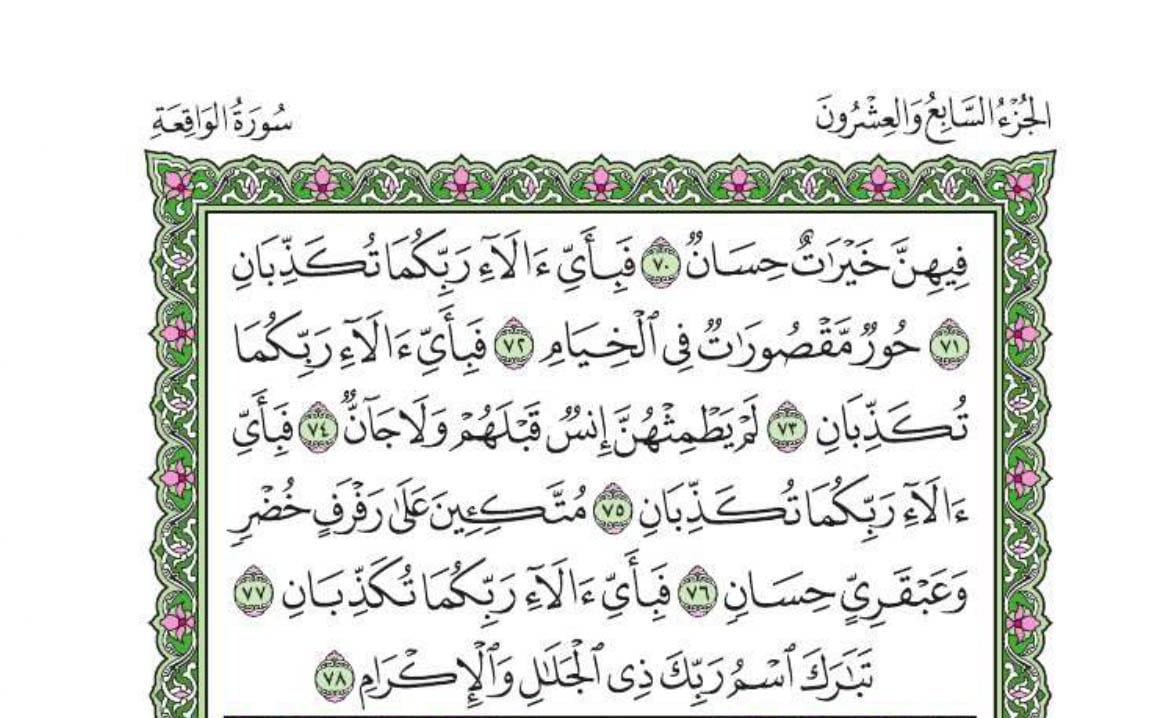 الجُزْءُ السَّابِعُ وَالعِشْرُونَ
سُورَةُ الوَاقِعَةِ
فِيهِنَّ خَيْرَٰتٌ حِسَانٌ ٧٠ فَبِأَىِّ ءَالَآءِ رَبِّكُمَا تُكَذِّبَانِ
٧١ حُورٌ مَّقْصُورَٰتٌ فِى ٱلْخِيَامِ ٧٢ فَبِأَىِّ ءَالَآءِ رَبِّكُمَا
تُكَذِّبَانِ ٧٣ لَمْ يَطْمِثْهُنَّ إِنسٌ قَبْلَهُمْ وَلَا جَآنٌّ ٧٤ فَبِأَىِّ
ءَالَآءِ رَبِّكُمَا تُكَذِّبَانِ ٧٥ مُتَّكِـِٔينَ عَلَىٰ رَفْرَفٍ خُضْرٍ
وَعَبْقَرِىٍّ حِسَانٍ ٧٦ فَبِأَىِّ ءَالَآءِ رَبِّكُمَا تُكَذِّبَانِ ٧٧
تَبَٰرَكَ ٱسْمُ رَبِّكَ ذِى ٱلْجَلَٰلِ وَٱلْإِكْرَامِ ٧٨